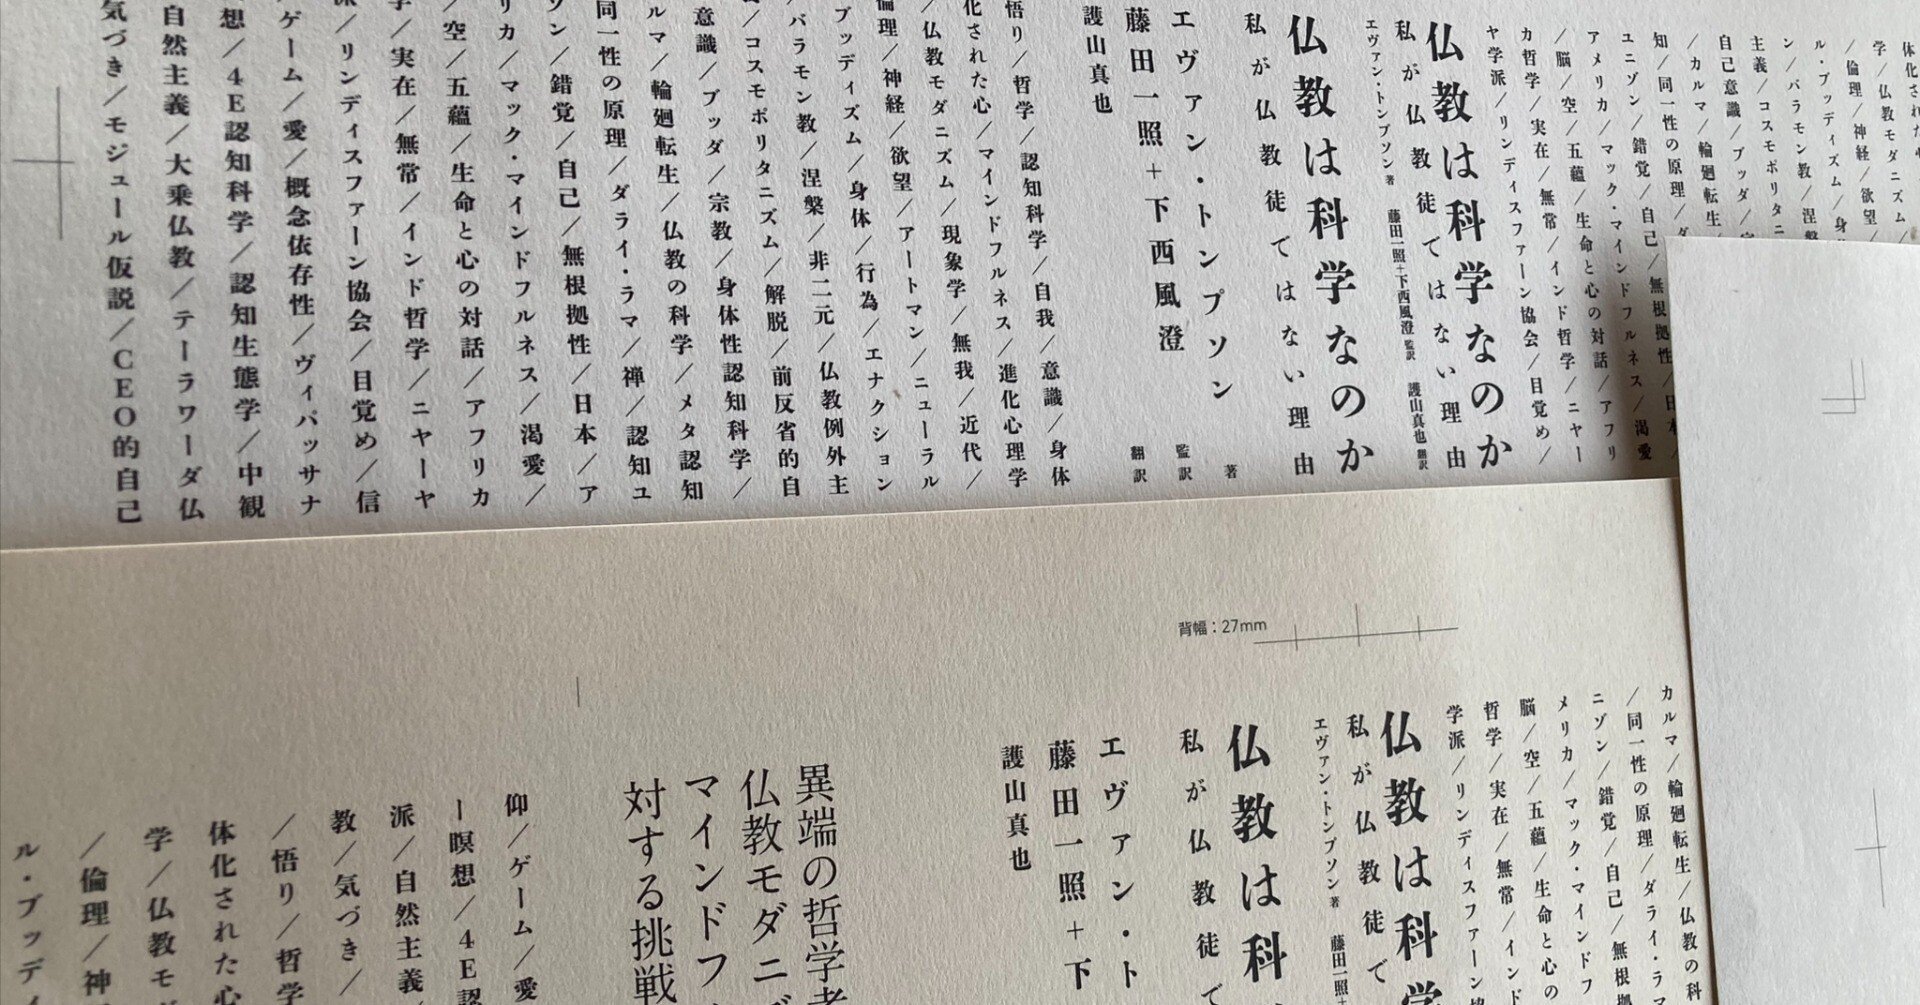 体化され
学／仏教モダニズム／
／倫理／神経／欲望／
ル・ブッディズム／身
ン／バラモン教／涅
主義／コスモポリタニ
自己意識／ブッダ／
／カルマ／輪廻転生
知／同一性の原理／ダ
ユニゾン／錯覚／自己／無根拠性／日本／
アメリカ／マック・マインドフルネス／渇愛
／脳／空／五蘊／生命と心の対話／アフリ
カ哲学／実在／無常／インド哲学／ニヤー
ヤ学派／リンディスファーン協会／目覚め／
仏教は科学なのか
私が仏教徒ではない理由
エヴァン・トンプソン 著 藤田一照＋下西風澄 監訳 護山真也 翻訳
仏教は科学なのか
私が仏教徒ではない理由
エヴァン・トンプソン 著
藤田一照＋下西風澄 監訳
護山真也 翻訳
悟り／哲学／認知科学／自我／意識／身体
化された心／マインドフルネス／進化心理学
／仏教モダニズム／現象学／無我／近代／
倫理／神経／欲望／アートマン／ニューラル
ブッディズム／身体／行為／エナクション
／バラモン教／涅槃／非二元／仏教例外主
／コスモポリタニズム／解脱／前反省的自
意識／ブッダ／宗教／身体性認知科学／
ルマ／輪廻転生／仏教の科学／メタ認知
同一性の原理／ダライ・ラマ／禅／認知ユ
ゾン／錯覚／自己／無根拠性／日本／ア
リカ／マック・マインドフルネス／渇愛／
／空／五蘊／生命と心の対話／アフリカ
学／実在／無常／インド哲学／ニヤーヤ
／リンディスファーン協会／目覚め／信
ゲーム／愛／概念依存性／ヴィパッサナ
想／4E認知科学／認知生態学／中観
自然主義／大乗仏教／テーラワーダ仏
気づき／モジュール仮説／CEO的自己
背幅：27mm
カルマ／輪廻転生／仏教の科
／同一性の原理／ダライ・ラマ
ニゾン／錯覚／自己／無根拠
メリカ／マック・マインドフ
脳／空／五蘊／生命と心の
哲学／実在／無常／インド
学派／リンディスファーン協
仏教は科学
私が仏教徒で
エヴァン・トンプソン 著 藤田一照＋
仏教は科
私が仏教徒で
エヴァン・ト
藤田一照＋下
護山真也
異端の哲学者
仏教モダニズ
マインドフ
対する挑戦
仰／ゲーム／愛
ー瞑想／4E認
派／自然主義／
教／気づき／
／悟り／哲学
体化された心
学／仏教モダ
／倫理／神
ル・ブッデ